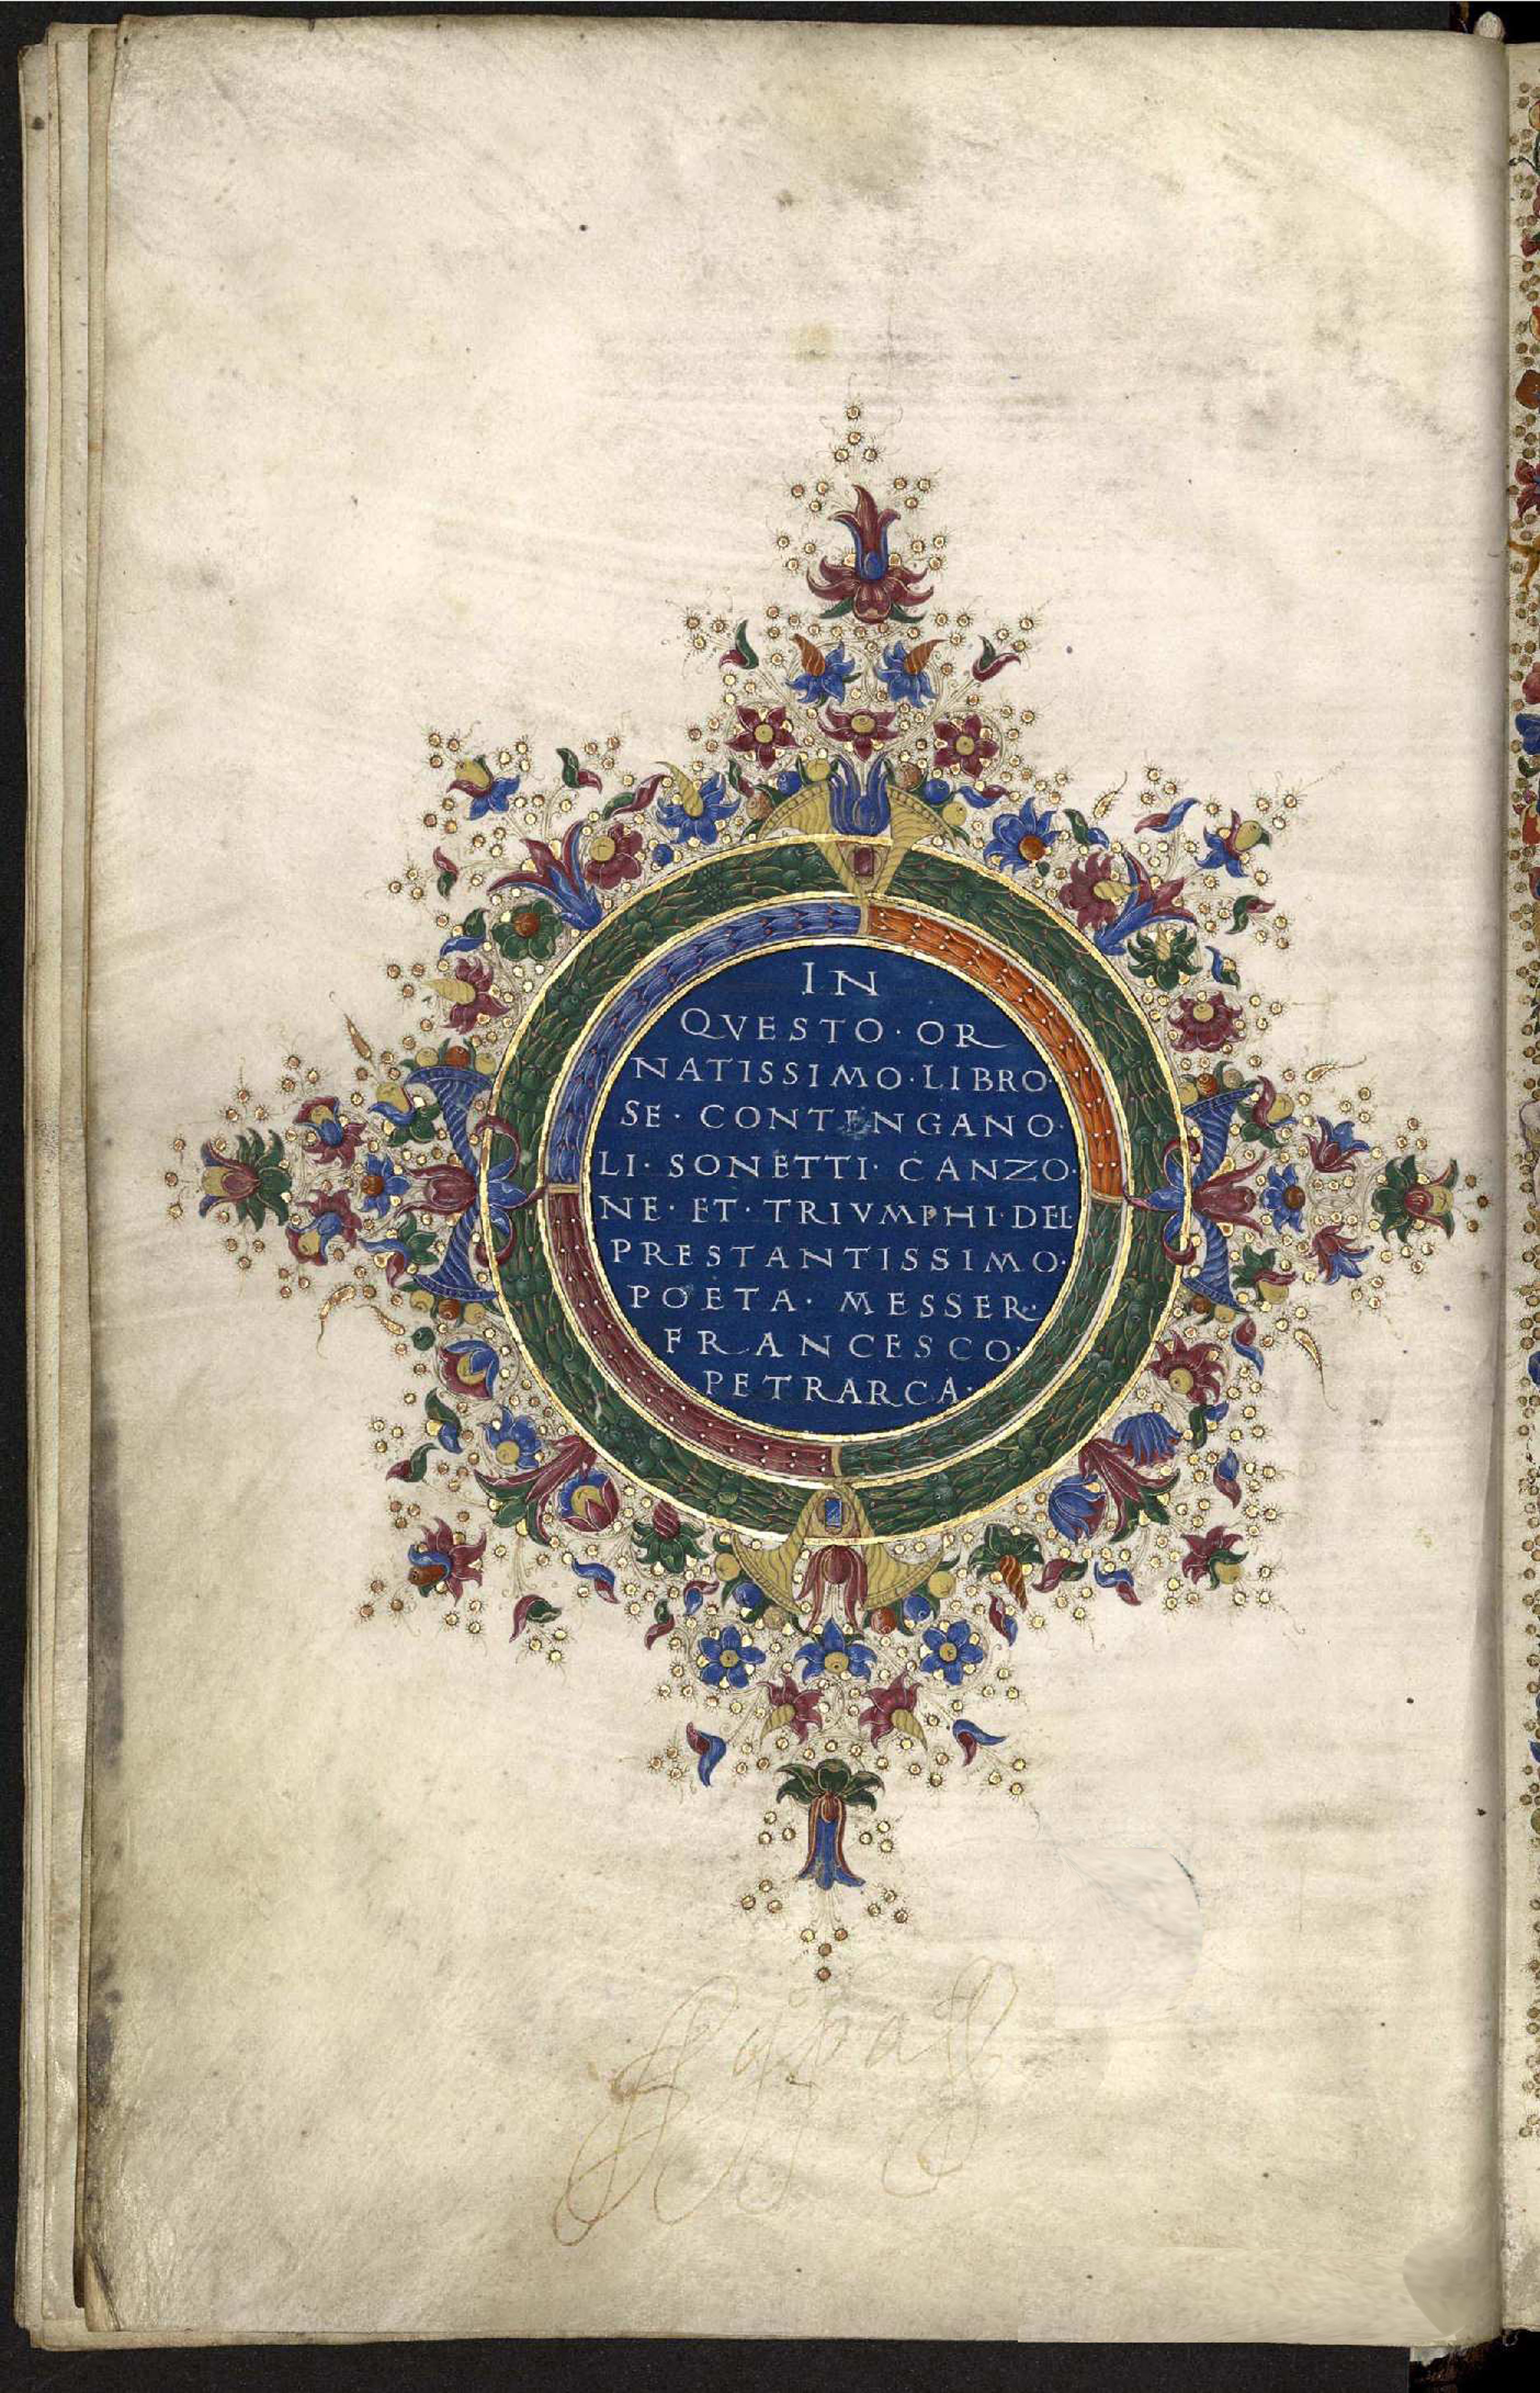 IN
QVESTO · OR
NATISSIMO · LIBRO ·
SE · CONTENGANO ·
LI · SONETTI · CANZO ·
NE · ET · TRIVMPHI · DEL
PRESTANTISSIMO ·
POETA · MESSER ·
FRANCESCO ·
PETRARCA ·